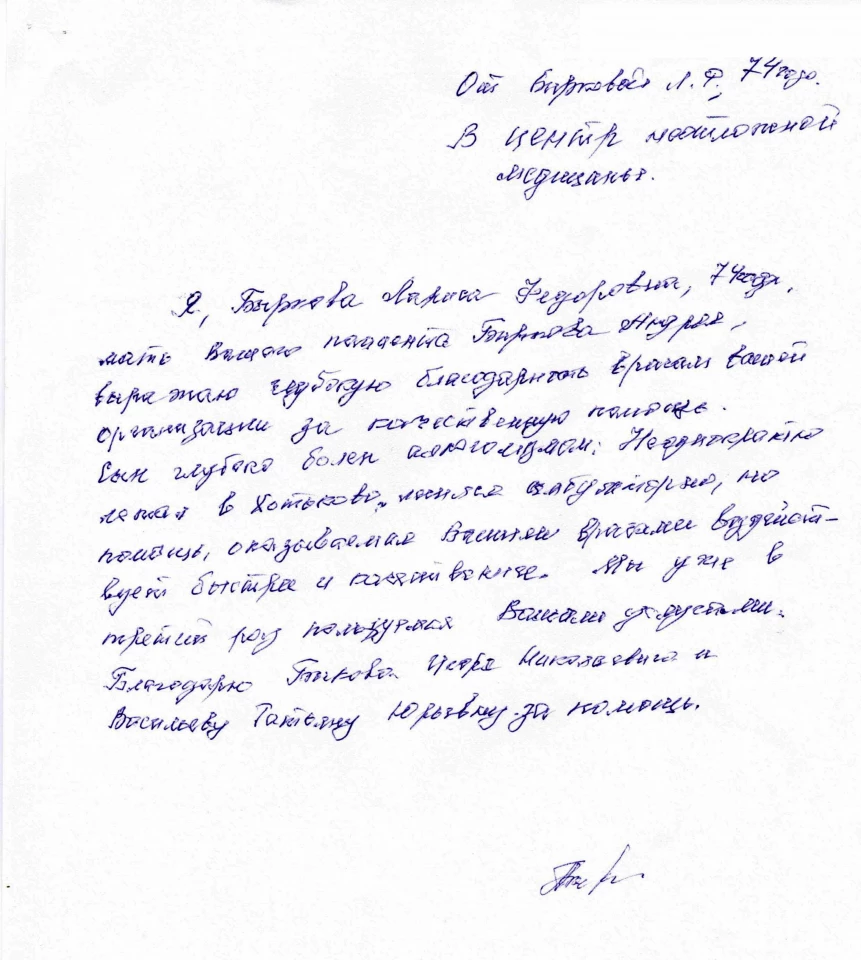 От Бирковой Л.Ф., 74 года.
В центр неотложной
медицины.
Я, Биркова Лариса Федоровна, 74 года,
мать Вашего пациента Биркова Андрея,
выражаю глубокую благодарность врачам вашей
организации за качественную помощь.
Сын глубоко болен алкоголизмом. Неоднократно
лежал в Хотьково, лечился амбулаторно, но
помощь, оказываемая Вашими врачами воздейст-
вует быстро и качественно. Мы уже в
третий раз пользуемся Вашими услугами.
Благодарю Быкова Игоря Николаевича и
Васильеву Татьяну Юрьевну за помощь.